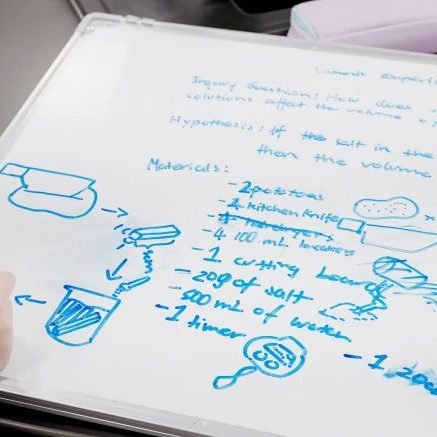 Inquiry Question: How does
solutions affect the volume o
Hypothesis: If the salt in the
then the volume
Materials:
- 2 potatoes
- 1 kitchen knife
- 4 100 mL beakers
- 1 cutting board
- 20g of salt
- 500 mL of water
- 1 timer
- 1